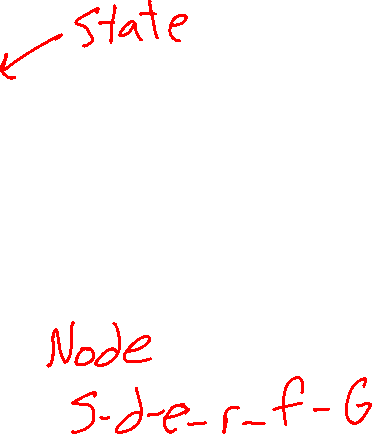 State
Node
S-d-e-r-f-G